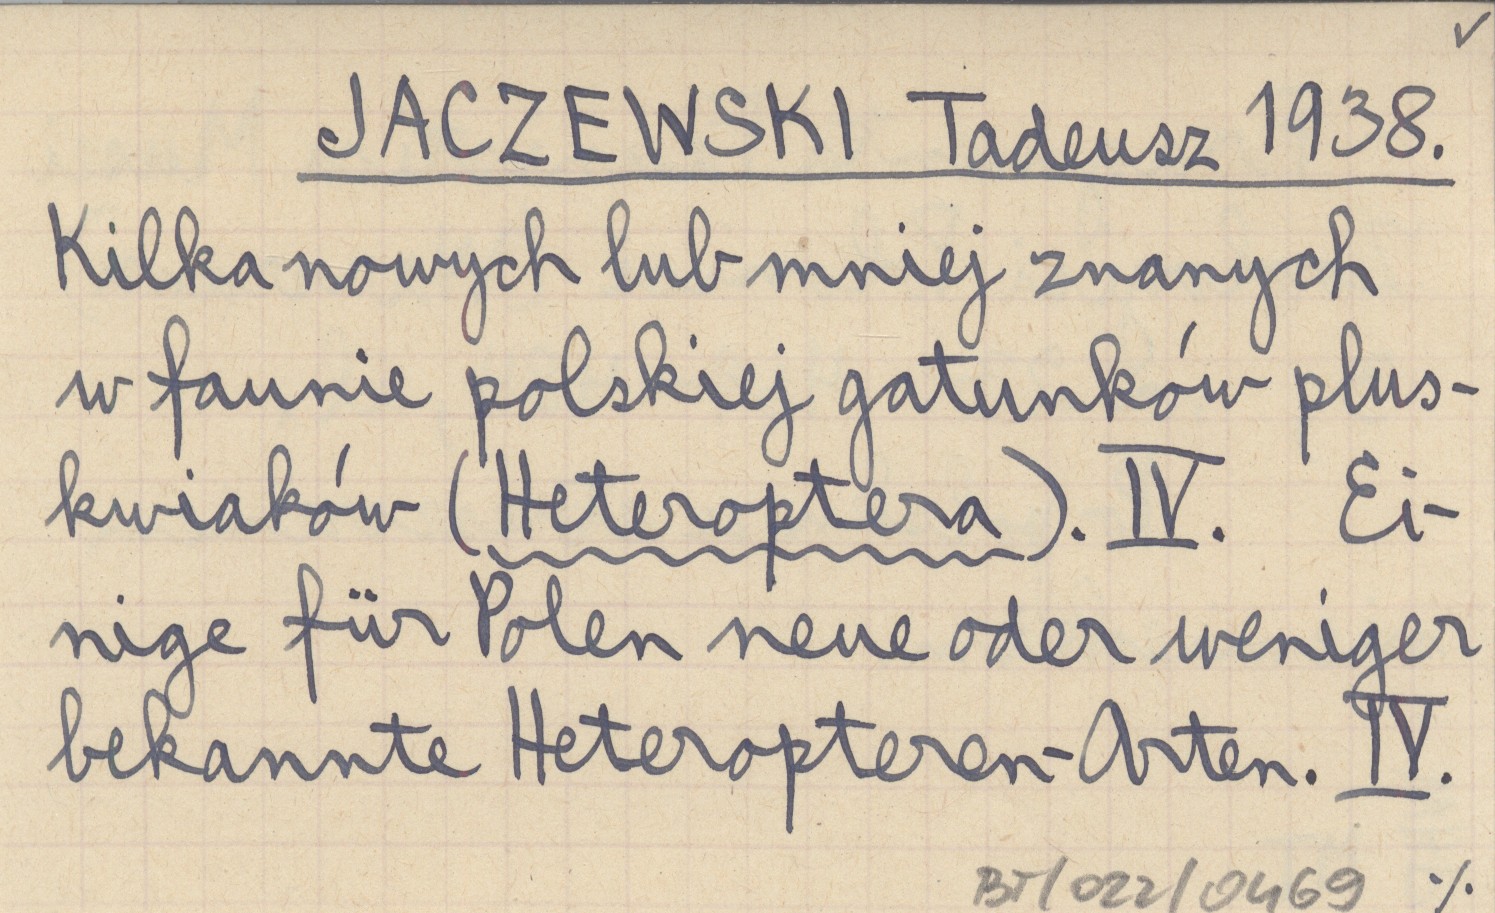 JACZEWSKI Tadeusz 1938.
Kilka nowych lub mniej znanych
w faunie polskiej gatunków plus-
kwiaków (Heteroptera). IV. Ei-
nige für Polen neue oder weniger
bekannte Heteropteren-Arten. IV.
BI/022/0469 ./.